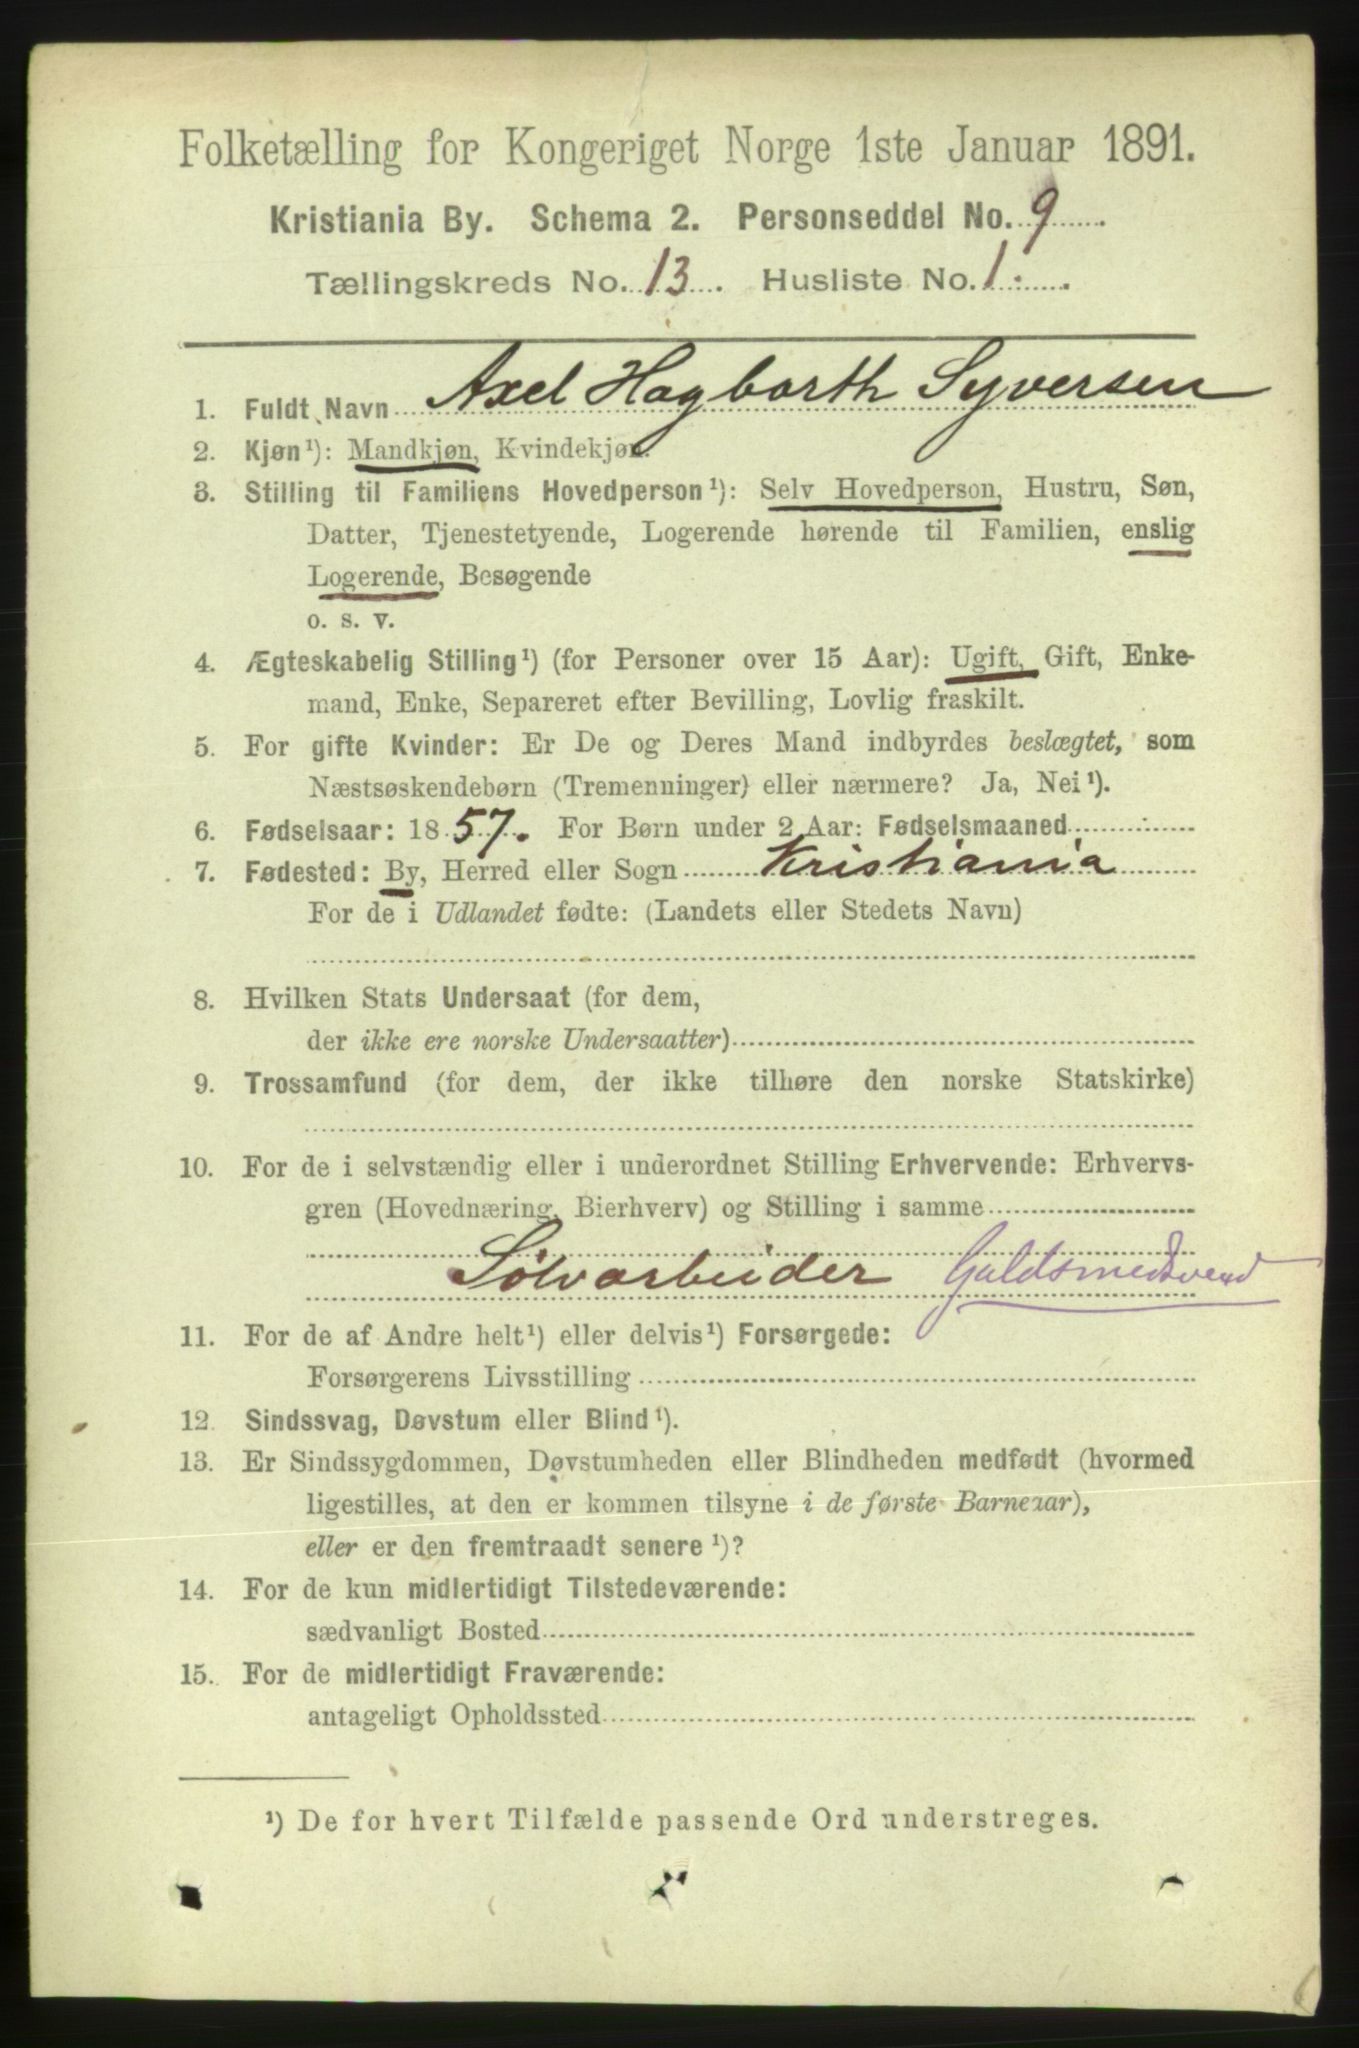 Folketælling for Kongeriget Norge 1ste Januar 1891.
Kristiania By. Schema 2. Personseddel No. 9
Tællingskreds No. 13. Husliste No. 1.
1. Fuldt Navn Axel Hagbarth Syversen
2. Kjøn¹): Mandkjøn, Kvindekjøn.
3. Stilling til Familiens Hovedperson¹): Selv Hovedperson, Hustru, Søn,
Datter, Tjenestetyende, Logerende hørende til Familien, enslig
Logerende, Besøgende
o. s. v.
4. Ægteskabelig Stilling¹) (for Personer over 15 Aar): Ugift, Gift, Enke-
mand, Enke, Separeret efter Bevilling, Lovlig fraskilt.
5. For gifte Kvinder: Er De og Deres Mand indbyrdes beslægtet, som
Næstsøskendebørn (Tremenninger) eller nærmere? Ja, Nei¹).
6. Fødselsaar: 1857. For Børn under 2 Aar: Fødselsmaaned
7. Fødested: By, Herred eller Sogn Kristiania
For de i Udlandet fødte: (Landets eller Stedets Navn)
8. Hvilken Stats Undersaat (for dem,
der ikke ere norske Undersaatter)
9. Trossamfund (for dem, der ikke tilhøre den norske Statskirke)
10. For de i selvstændig eller i underordnet Stilling Erhvervende: Erhvervs-
gren (Hovednæring, Bierhverv) og Stilling i samme
Sølvarbeider Guldsmedsvend
11. For de af Andre helt¹) eller delvis¹) Forsørgede:
Forsørgerens Livsstilling
12. Sindssvag, Døvstum eller Blind¹).
13. Er Sindssygdommen, Døvstumheden eller Blindheden medfødt (hvormed
ligestilles, at den er kommen tilsyne i de første Barneaar),
eller er den fremtraadt senere¹)?
14. For de kun midlertidigt Tilstedeværende:
sædvanligt Bosted
15. For de midlertidigt Fraværende:
antageligt Opholdssted
¹) De for hvert Tilfælde passende Ord understreges.